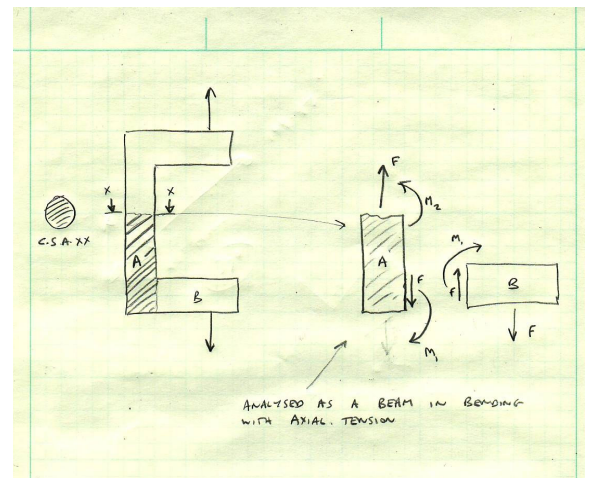 X X
C.S.A. XX
A
B
F
M2
A
F
M1
M1
F
B
F
ANALYSED AS A BEAM IN BENDING
WITH AXIAL. TENSION